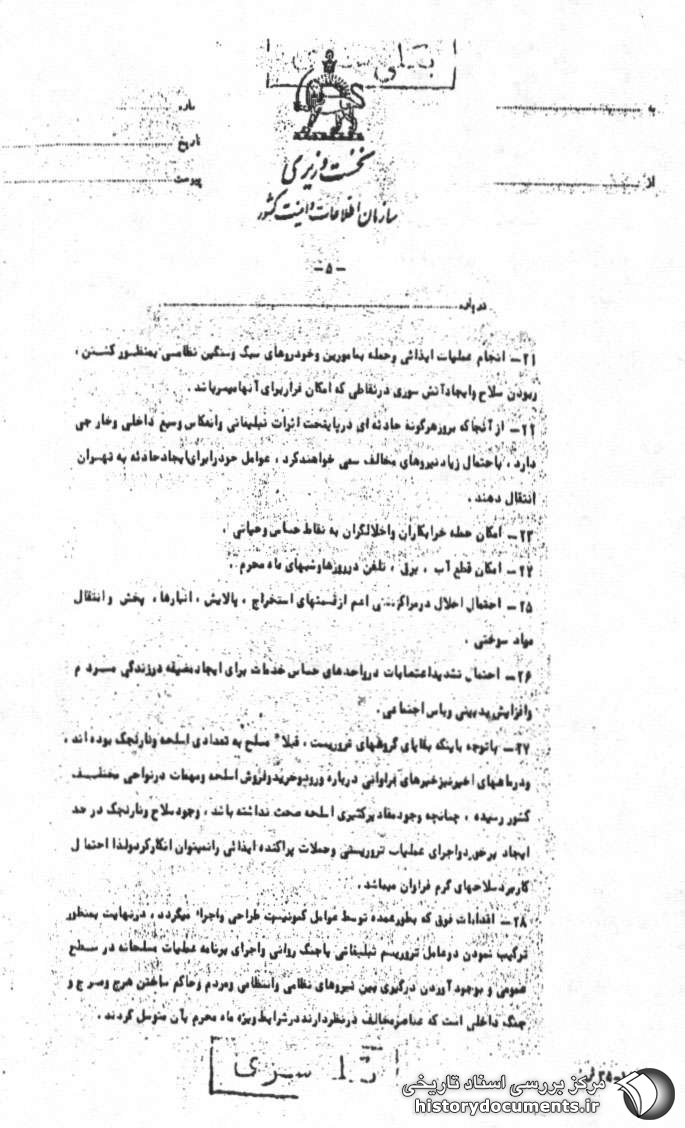 بکلی سری
به
از
شماره
تاریخ
پیوست
نخست وزیری
سازمان اطلاعات و امنیت کشور
- ۵ -
درباره
۲۱- انجام عملیات ایذائی وحمله بمامورین وخودروهای سبک وسنگین نظامی بمنظور کشتن ،
ربودن سلاح وایجادآتش سوزی درنقاطی که امکان فراربرای آنهامیسرباشد .
۲۲- از آنجاکه بروزهرگونه حادثه ای درپایتخت اثرات تبلیغاتی وانعکاس وسیع داخلی وخارجی
دارد ، باحتمال زیادنیروهای مخالف سعی خواهندکرد ، عوامل خودرابرای‌ایجادحادثه به تهران
انتقال دهند .
۲۳- امکان حمله خرابکاران واخلالگران به نقاط حساس وحیاتی .
۲۴- امکان قطع آب ، برق ، تلفن درروزهاوشبهای ماه محرم .
۲۵- احتمال اخلال درمراکزنفتی اعم ازقسمتهای استخراج ، پالایش ، انبارها ، پخش وانتقال
مواد سوختی .
۲۶- احتمال تشدیداعتصابات درواحدهای حساس خدمات برای ایجادمضیقه درزندگی مردم
وافزایش بدبینی ویاس اجتماعی .
۲۷- باتوجه باینکه بقایای گروههای تروریست ، قبلا" مسلح به تعدادی اسلحه ونارنجک بوده اند ،
ودرماههای اخیرنیزخبرهای فراوانی درباره ورودوخریدوفروش اسلحه ومهمات درنواحی مختلف
کشور رسیده ، چنانچه وجودمقادیرکثیری اسلحه صحت نداشته باشد ، وجودسلاح ونارنجک در حد
ایجاد برخوردواجرای عملیات تروریستی وحملات پراکنده ایذائی رانمیتوان انکارکردولذا احتمال
کاربردسلاحهای گرم فراوان میباشد .
۲۸- اقدامات فوق که بطورعمده توسط عوامل کمونیست طراحی واجراء میگردد ، درنهایت بمنظور
ترکیب نمودن دوعامل تروریسم تبلیغاتی باجنگ روانی واجرای برنامه عملیات مسلحانه در سطح
عمومی و بوجودآوردن درگیری بین نیروهای نظامی وانتظامی ومردم وحاکم ساختن هرج ومرج و
جنگ داخلی است که عناصرمخالف درنظردارنددرشرایط ویژه ماه محرم بآن متوسل گردند .
سری
مرکز بررسی اسناد تاریخی
historydocuments.ir